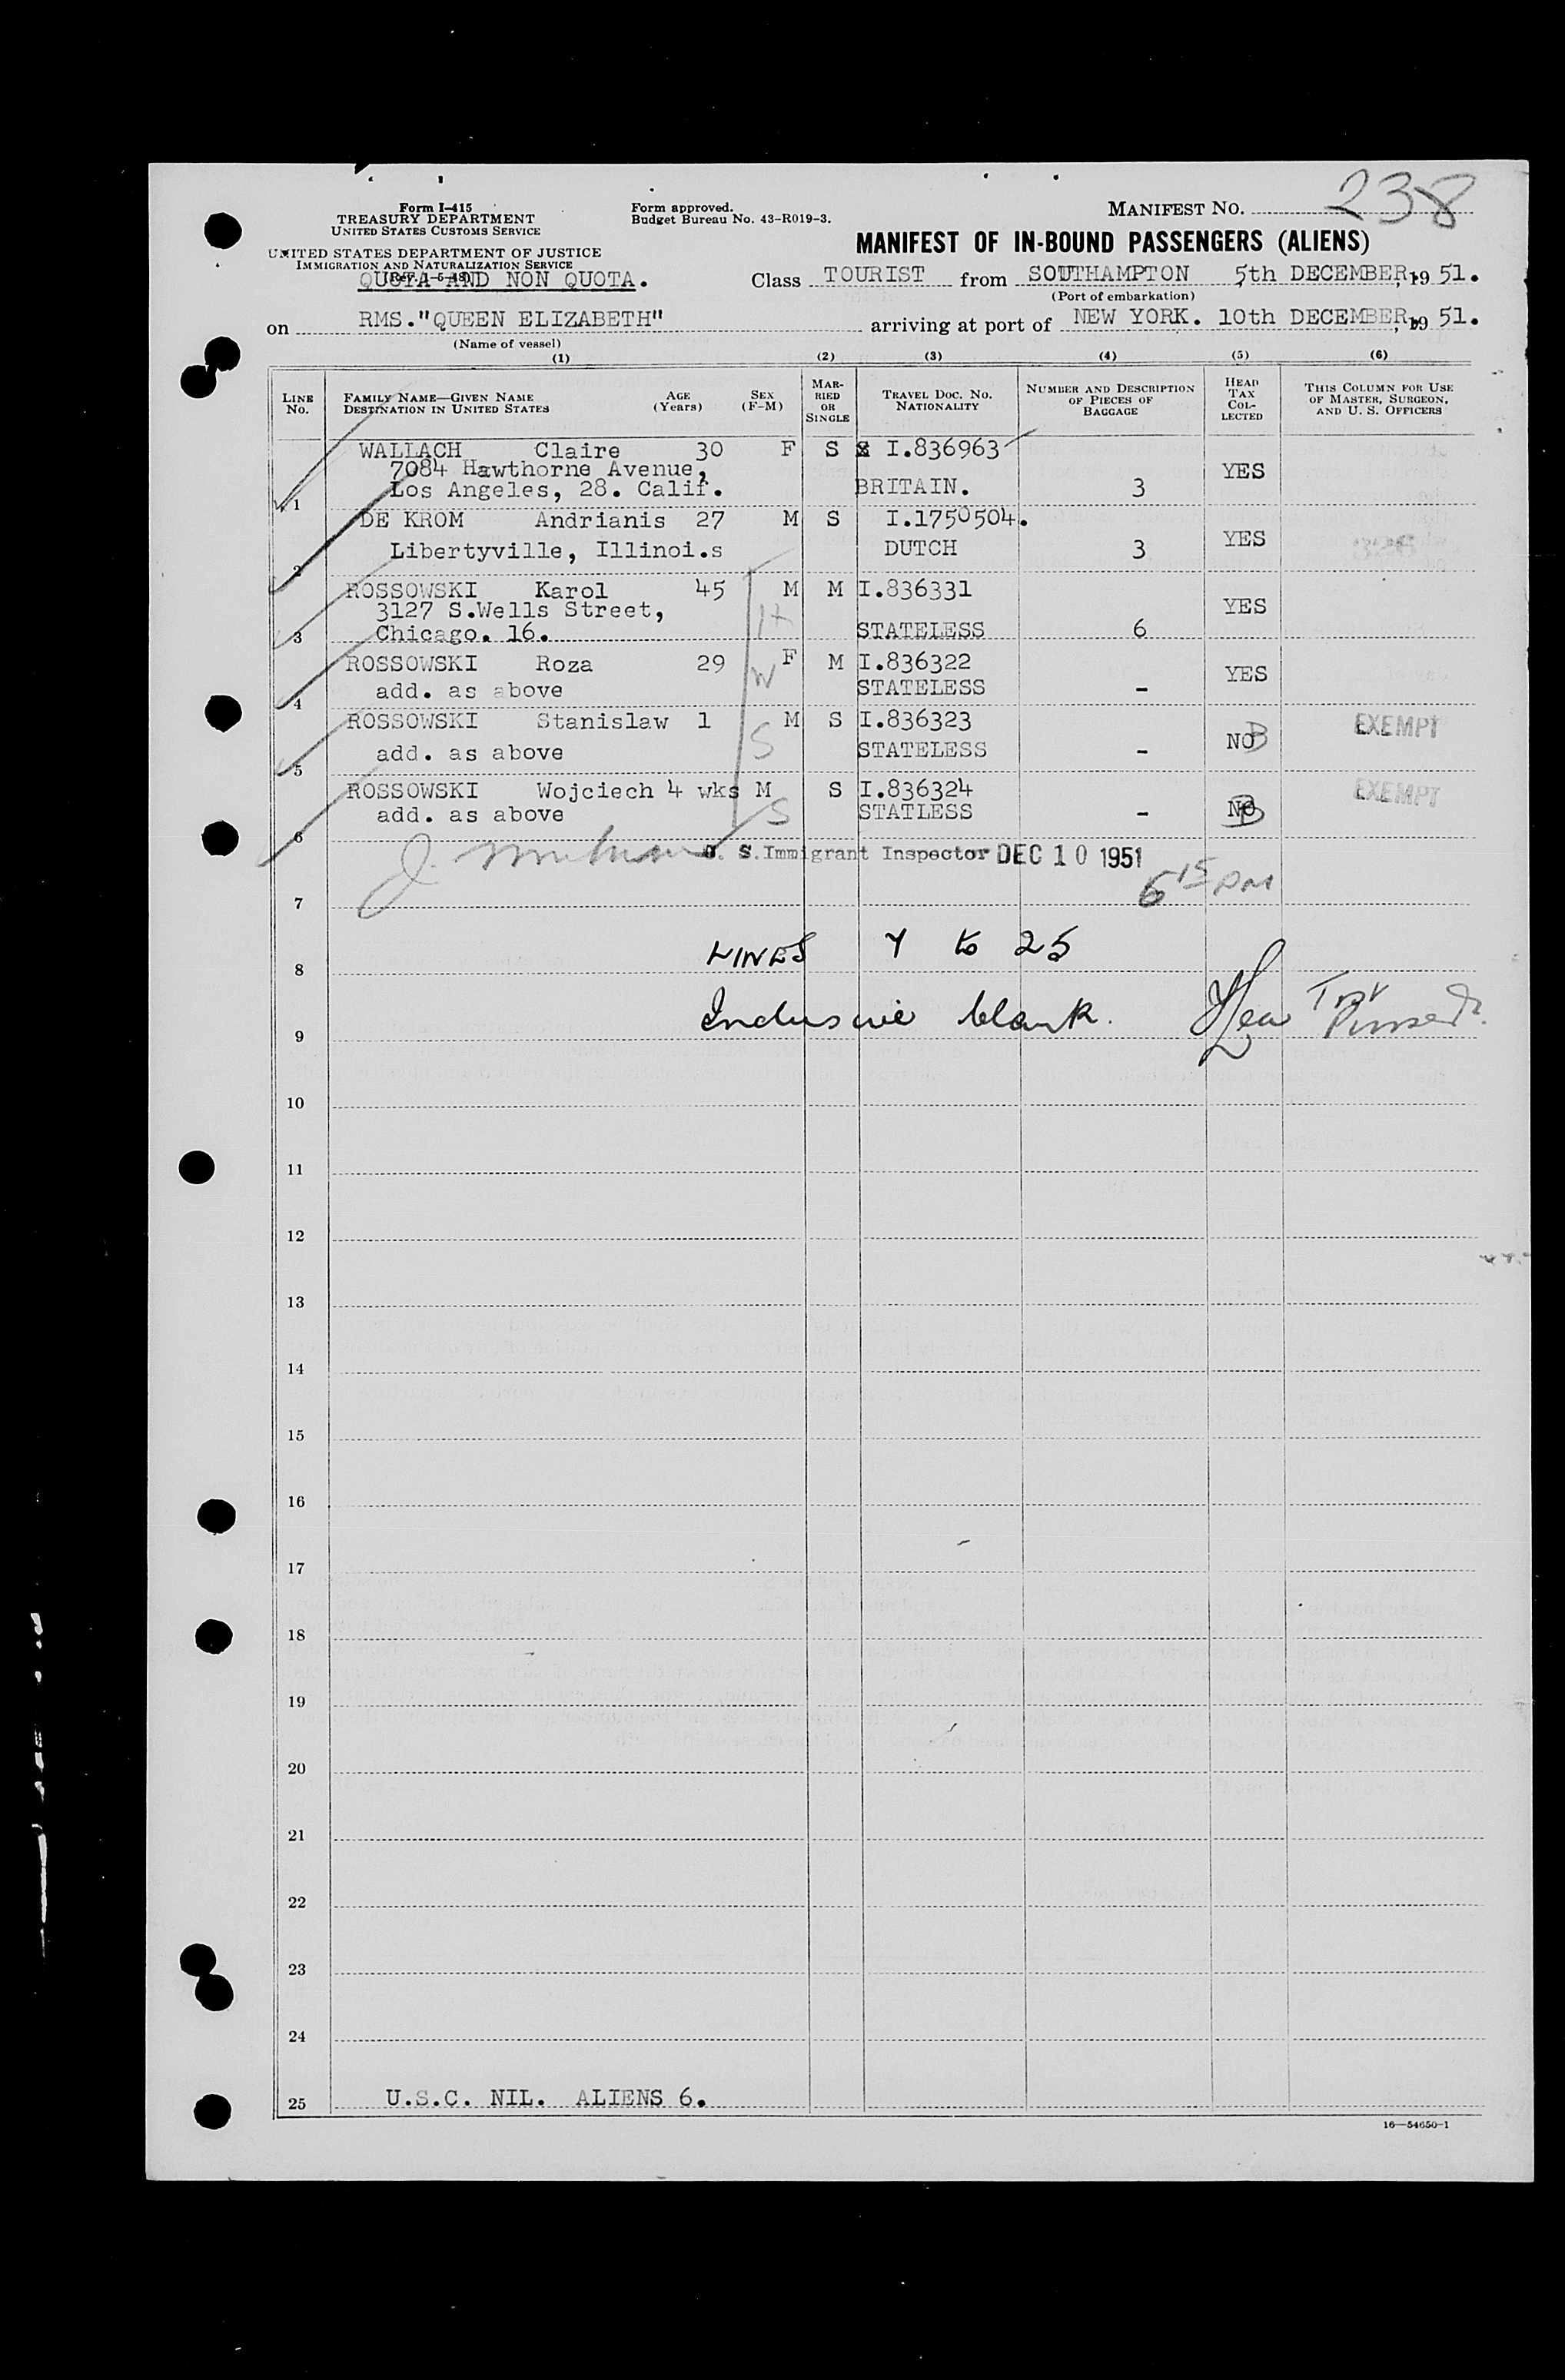 238
Form I-415
TREASURY DEPARTMENT
UNITED STATES CUSTOMS SERVICE
Form approved.
Budget Bureau No. 43-R019-3.
MANIFEST NO.
UNITED STATES DEPARTMENT OF JUSTICE
IMMIGRATION AND NATURALIZATION SERVICE
MANIFEST OF IN-BOUND PASSENGERS (ALIENS)
QUOTA AND NON QUOTA.
Class TOURIST from SOUTHAMPTON 5th DECEMBER, 19 51.
(Port of embarkation)
on RMS."QUEEN ELIZABETH" arriving at port of NEW YORK. 10th DECEMBER, 19 51.
(Name of vessel)
(1) (2) (3) (4) (5) (6)
LINE No. FAMILY NAME—GIVEN NAME DESTINATION IN UNITED STATES AGE (Years) SEX (F-M) MARRIED OR SINGLE TRAVEL DOC. NO. NATIONALITY NUMBER AND DESCRIPTION OF PIECES OF BAGGAGE HEAD TAX COLLECTED THIS COLUMN FOR USE OF MASTER, SURGEON, AND U. S. OFFICERS
WALLACH Claire 30 F S I.836963
7084 Hawthorne Avenue, YES
1 Los Angeles, 28. Calif. BRITAIN. 3
DE KROM Andrianis 27 M S I.1750504.
Libertyville, Illinoi.s DUTCH 3 YES
2
ROSSOWSKI Karol 45 M M I.836331
3127 S.Wells Street, YES
3 Chicago. 16. STATELESS 6
ROSSOWSKI Roza 29 F M I.836322
add. as above STATELESS - YES
4
ROSSOWSKI Stanislaw 1 M S I.836323 EXEMPT
add. as above STATELESS - NO
5
ROSSOWSKI Wojciech 4 wks M S I.836324 EXEMPT
add. as above STATLESS - NO
6
U. S. Immigrant Inspector DEC 10 1951
6 15 PM
7
LINES 7 to 25
8
Inclusive blank.
9
10
11
12
13
14
15
16
17
18
19
20
21
22
23
24
25 U.S.C. NIL. ALIENS 6.
16—54650-1